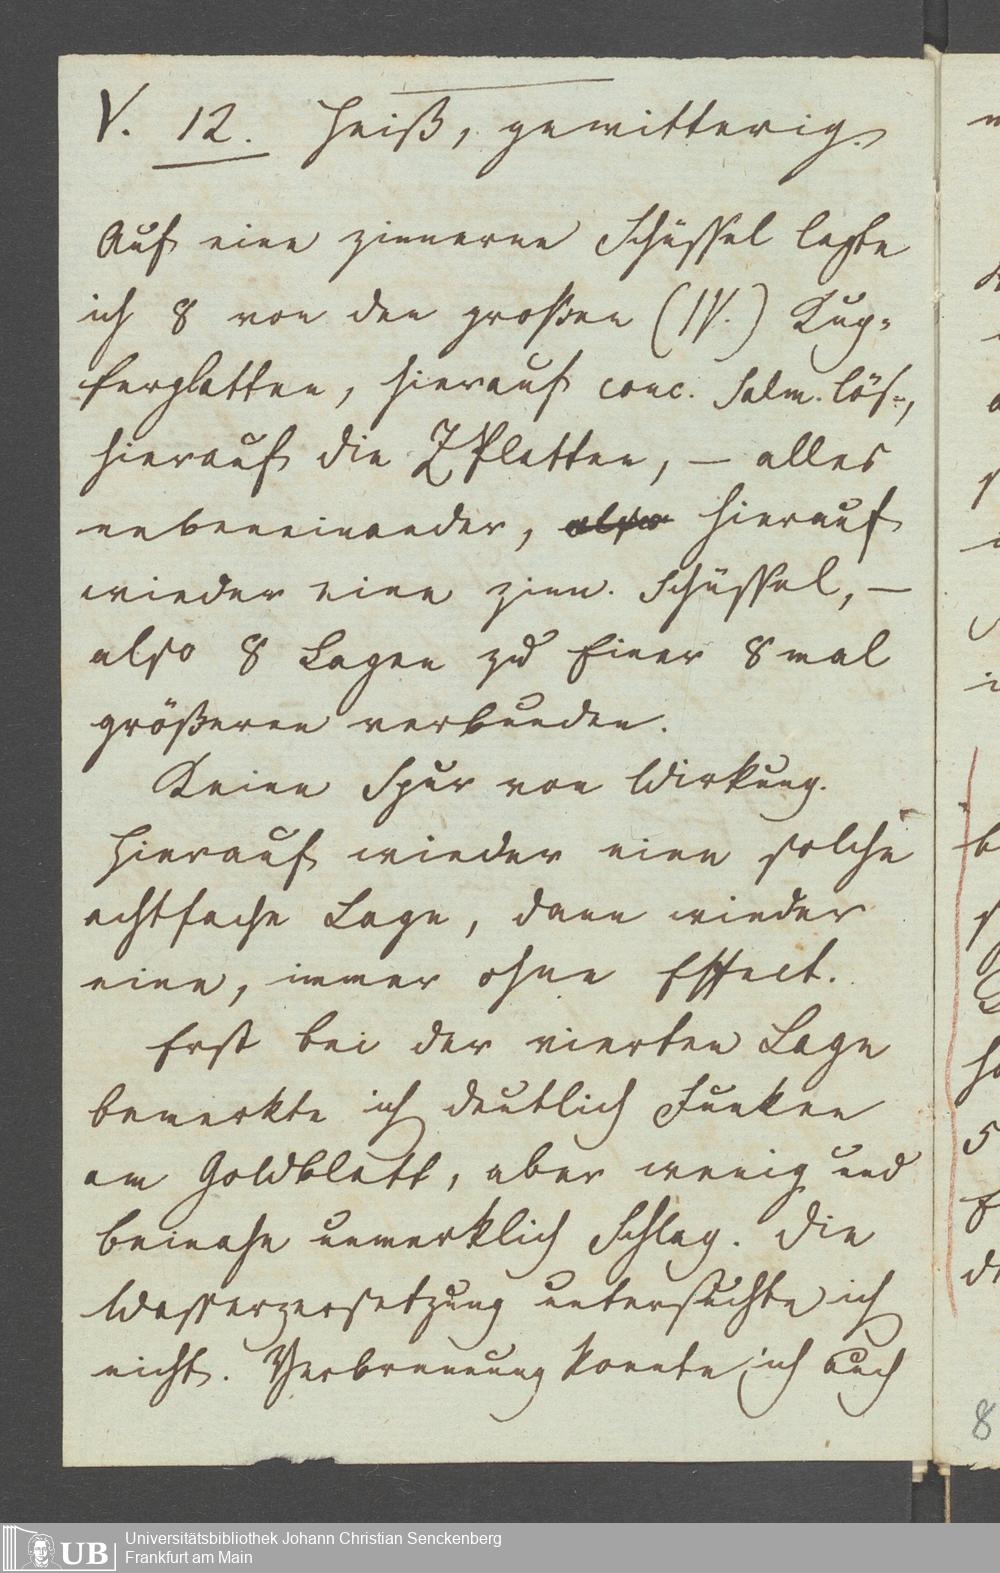 V. 12. Heiß, gewitterig.
Auf eine zinnerne Schüssel legte
ich 8 von den großen (IV.) Kup-
ferplatten, hierauf conc. Salm. lös.,
hierauf die Z Platten, – alles
nebeneinander, also hierauf
wieder eine zinn. Schüssel, –
also 8 Lagen zu Einer 8 mal
größeren verbunden.
Keine Spur von Wirkung.
Hierauf wieder eine solche
achtfache Lage, dann wieder
eine, immer ohne Effect.
Erst bei der vierten Lage
bemerkte ich deutlich Funken
am Goldblatt, aber wenig und
beinahe unmerklich Schlag. Die
Wasserzersetzung untersuchte ich
nicht. Verbrennung konnte ich auch
8
UB
Universitätsbibliothek Johann Christian Senckenberg
Frankfurt am Main